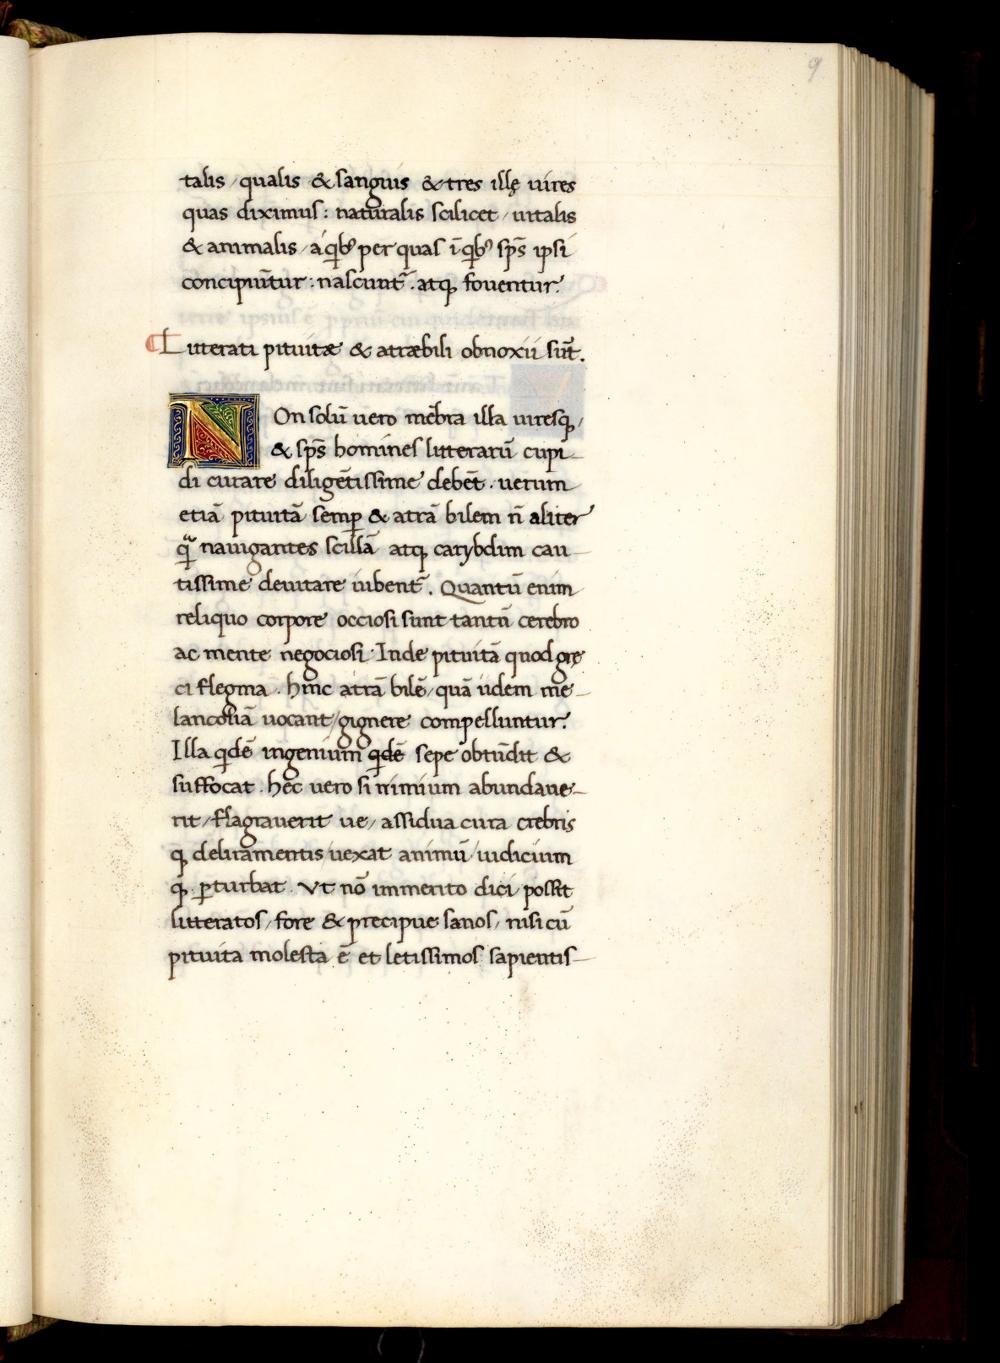 9
talis / qualis & sanguis & tres illę uires
quas diximus : naturalis scilicet / uitalis
& animalis / a qbꝰ per quas ī qbꝰ sp̄s ipsi
concipiūtur : nascunt᷑ . atq̨ fouentur .
Litterati pituitæ & atræbili obnoxii sūt .
NOn solū uero mēbra illa uiresq̨ /
& sp̄s homines litterarū cupi-
di curare diligētissime debēt . uerum
etiā pituitā semꝑ & atrā bilem n̄ aliter
q̄ nauigantes scillā atq̨ carybdim cau-
tissime deuitare iubent᷑ . Quantū enim
reliquo corpore occiosi sunt tantū cerebro
ac mente negociosi . Inde pituitā quod gre
ci flegma . hinc atrā bilē / quā iidem me-
lancoliā uocant / gignere compelluntur .
Illa qdē ingenium qdē sepe obtūdit &
suffocat . hec uero si nimium abundaue-
rit / flagrauerit ue / assidua cura crebris
q̨ deliramentis uexat animū / iudicium
q̨ ꝑturbat . Vt nō immerito dici possit
litteratos / fore & precipue sanos / nisi cū
pituita molesta ē et letissimos sapientis-